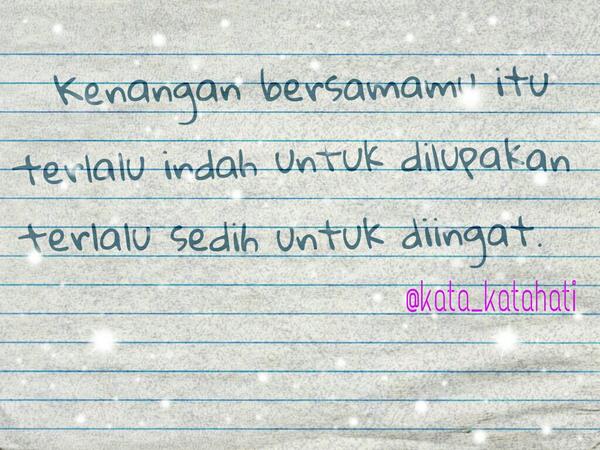 Kenangan bersamamu itu
terlalu indah untuk dilupakan
terlalu sedih untuk diingat.
@kata_katahati